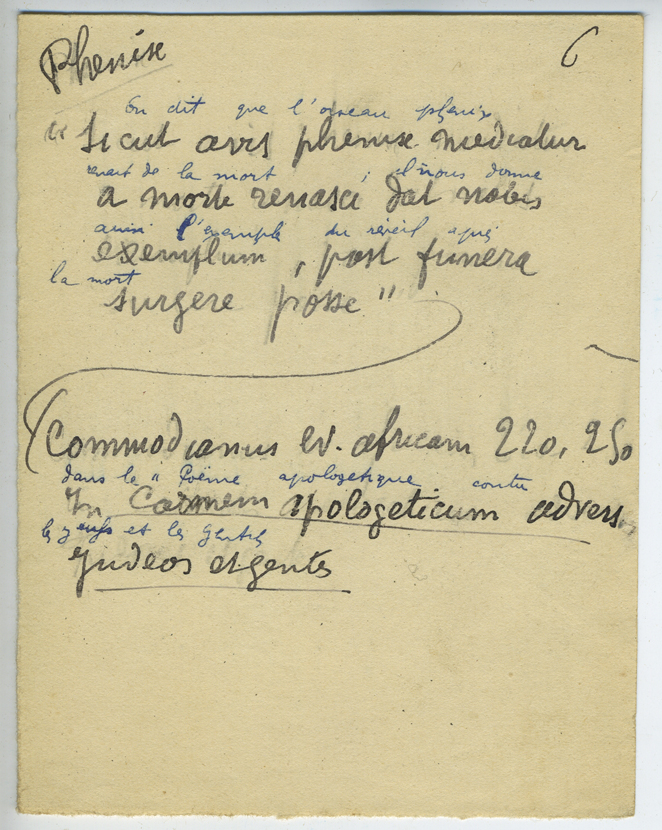 Phenix
6
On dit que l'oiseau phenix
"Sicut avis phenix mediatur
renait de la mort ; il nous donne
a morte renasci dat nobis
ainsi l'exemple du réveil après
exemplum, post funera
la mort
surgere posse"
Commodianus ev. african 220, 250
dans le "Poème apologetique contre
In Carmem apologeticum advers
les juifs et les gentils
Judeos et gentes